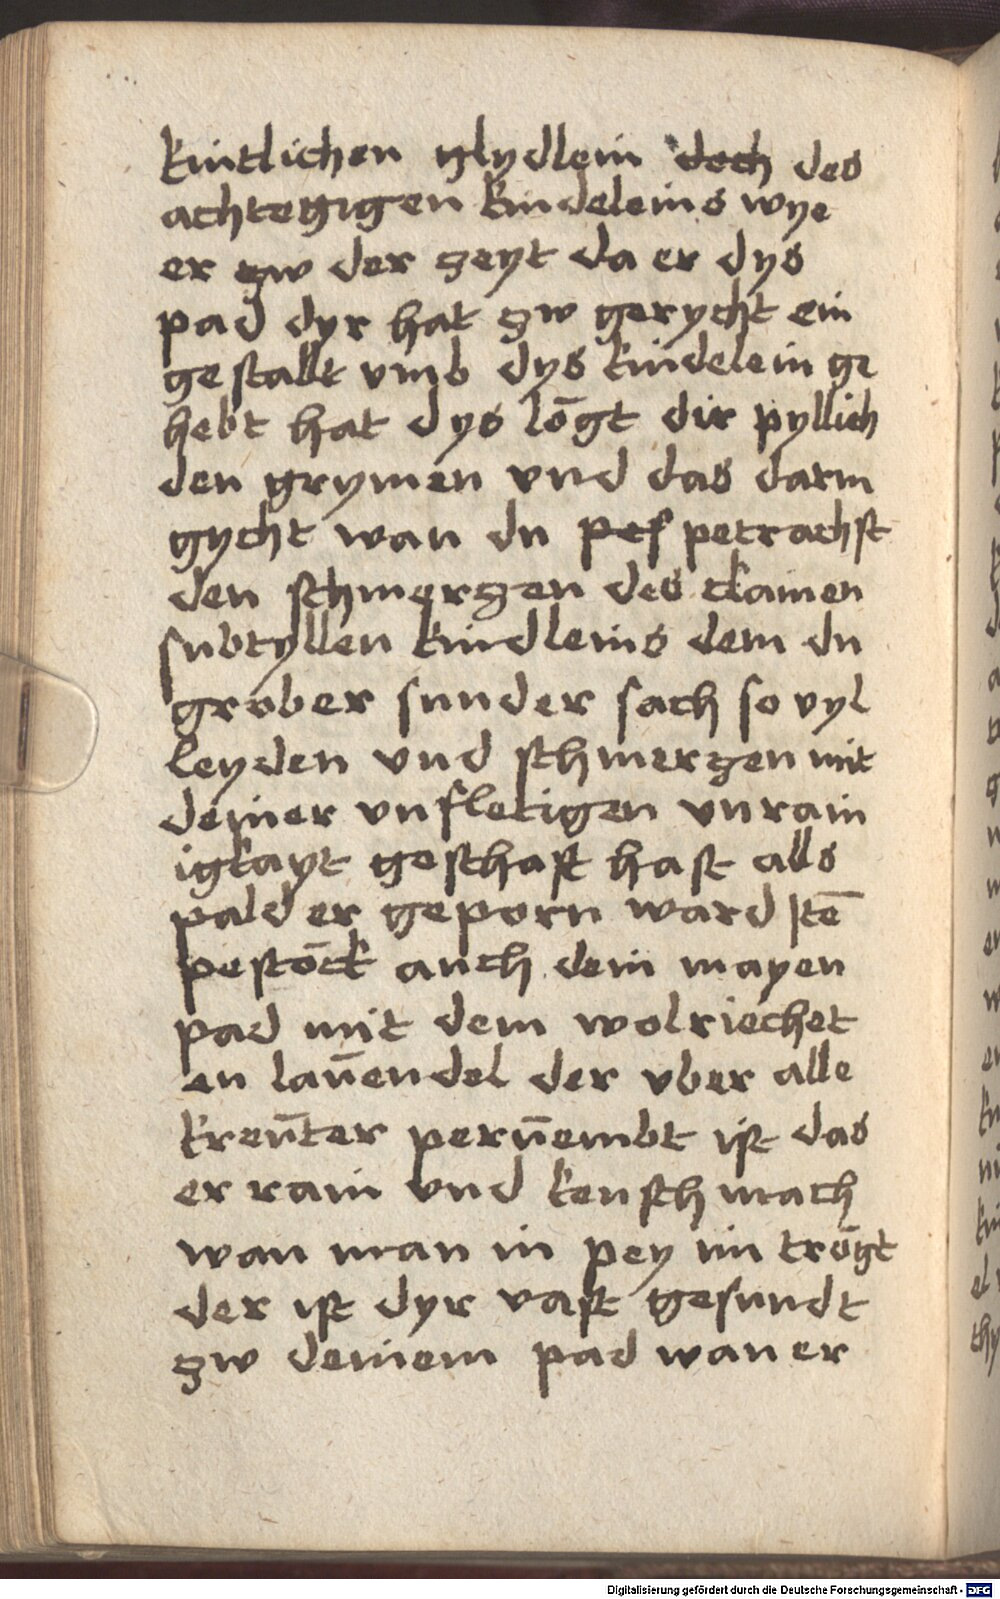 kintlichen glydlein doch des
achtegigen kindeleins wye
er zw der zeyt da er dys
pad dyr hat zw gerycht ein
gestallt vmb dys kindelein ge
hebt hat dys lōzt dir pyllich
den grymen vnd das darm
gycht wan du pes petrachst
den schmerzen des klainen
subtyllen kindleins dem du
grober sunder sach so vyl
leyden vnd schmerzen mit
deiner vnfletigen vnrain
igkayt geschaft hast alls
pald er geporn ward Itē
pestōck auch dein mayen
pad mit dem wolriechet
en lauēndel der vber alle
kreūter perūembt ist das
er rain vnd keusch mach
wan man in pey im trōgt
der ist dyr vast gesundt
zw deinem pad wan er
Digitalisierung gefördert durch die Deutsche Forschungsgemeinschaft - DFG